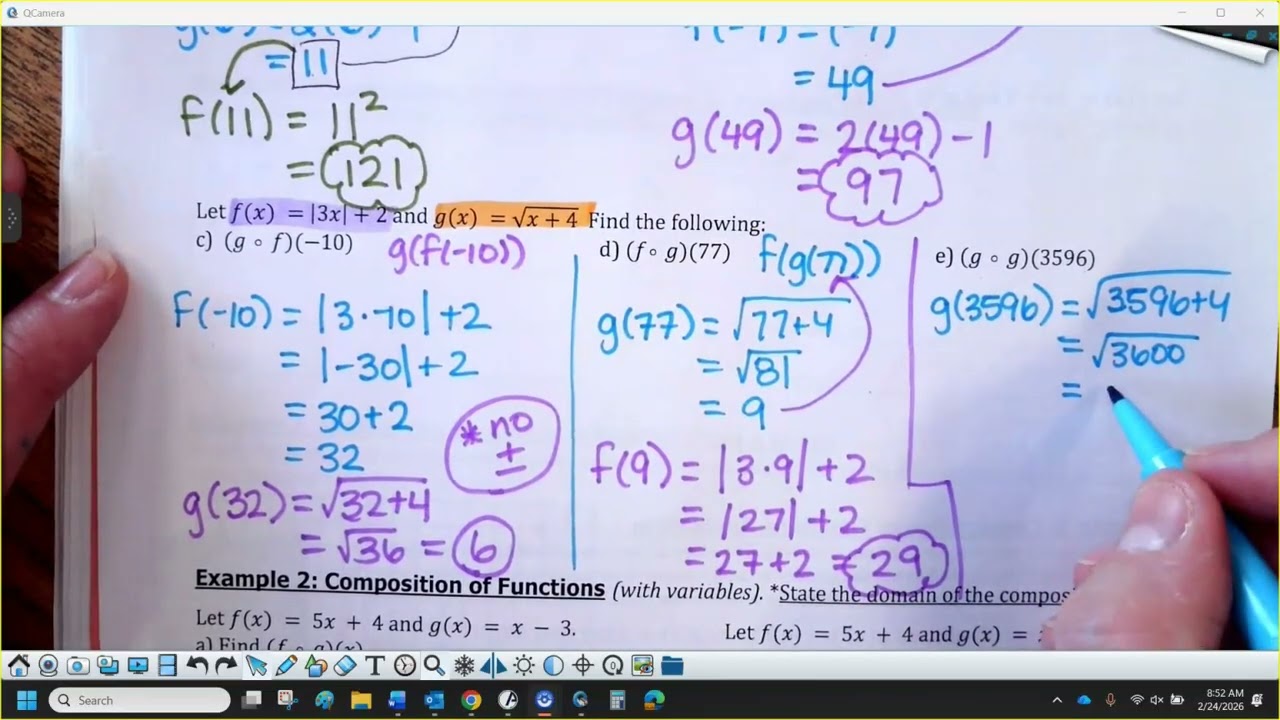 QCamera
= 11
= 49
f(11) = 11²
= 121
g(49) = 2(49) - 1
= 97
Let f(x) = |3x| + 2 and g(x) = √(x + 4) Find the following:
c) (g ∘ f)(−10)
g(f(-10))
f(-10) = |3·-10| + 2
= |-30| + 2
= 30 + 2
= 32
* no
±
g(32) = √(32+4)
= √36 = 6
d) (f ∘ g)(77)
f(g(77))
g(77) = √(77+4)
= √81
= 9
f(9) = |3·9| + 2
= |27| + 2
= 27 + 2 = 29
e) (g ∘ g)(3596)
g(3596) = √(3596+4)
= √3600
=
Example 2: Composition of Functions (with variables). *State the domain of the
Let f(x) = 5x + 4 and g(x) = x − 3.
Let f(x) = 5x + 4 and g(x) =
a) Find (f ∘ g)(x)
Search
8:52 AM
2/24/2026